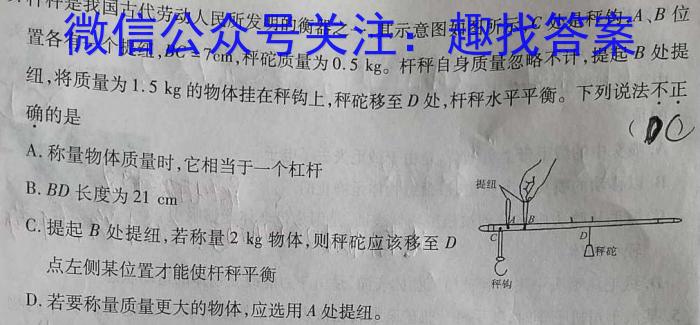 杆秤是我国古代劳动人民所发明的衡器之一,其示意图如图所示,C处是秤钩,A、B位
微信公众号关注:趣找答案
置各有一个提纽,BC=7cm,秤砣质量为0.5 kg。杆秤自身质量忽略不计,提起B处提
纽,将质量为1.5 kg的物体挂在秤钩上,秤砣移至D处,杆秤水平平衡。下列说法不正
确的是
A. 称量物体质量时,它相当于一个杠杆
B. BD长度为21 cm
C. 提起B处提纽,若称量2 kg物体,则秤砣应该移至D
点左侧某位置才能使杆秤平衡
D. 若要称量质量更大的物体,应选用A处提纽。
提纽
A
B
C
D
秤砣
秤钩